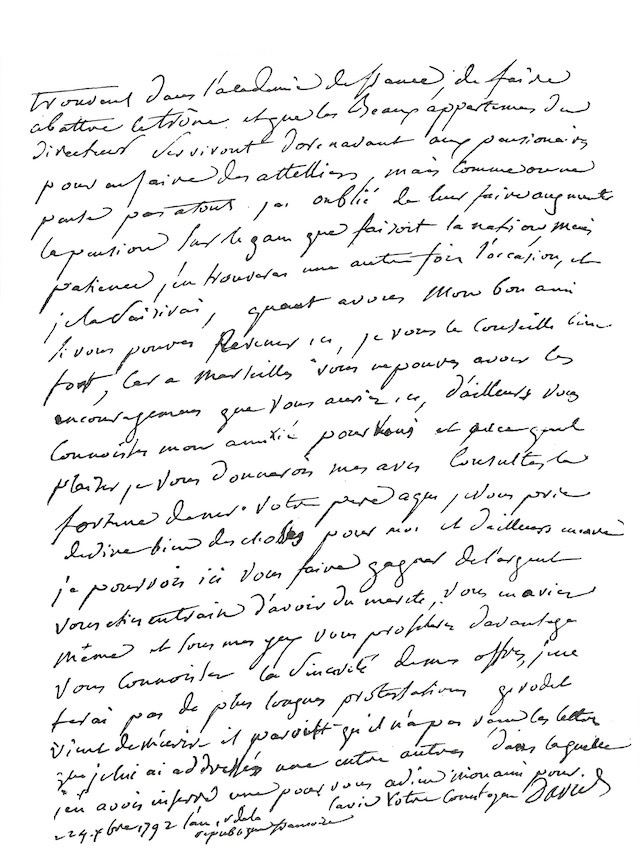 trouvent dans l'academie de france, de faire
abattre le trône. et que les beaux appartemens du
directeur serviront dorenavant aux pensionaires
pour en faire des attelliers, mais comme on ne
pense pas a tout. j'ai oublié de leur faire augmenter
la pension sur le gain que faisoit la nation, mais
patience j'en trouverai une autre fois l'occasion, et
je la saisirai, quant a vous mon bon ami
si vous pouvez revenir ici, je vous le conseille bien
fort, car a marseilles vous ne pouvez avoir les
encouragemens que vous auriez ici, d'ailleurs vous
connoissez mon amitié pour vous et avec quel
plaisir je vous donnerois mes avis consultez la
fortune de mr votre pere a qui je vous prie
de dire bien des choses pour moi et d'ailleurs encore
je pourrois ici vous faire gagner de l'argent
vous etiez en train d'avoir du merite, vous en aviez
même et sous mes yeux vous profiterez davantage
vous connoissez la sincerité de mes offres, je ne
ferai pas de plus longues protestations girodet
vient de m'écrire il paroitt qu'il n'a pas reçu les lettres
que je lui ai addressées une entre autres dans laquelle
j'en avois inseré une pour vous adieu mon ami pour
la vie votre concitoyen David
ce 24 xbre 1792 l'an 1er de la
republique francoise